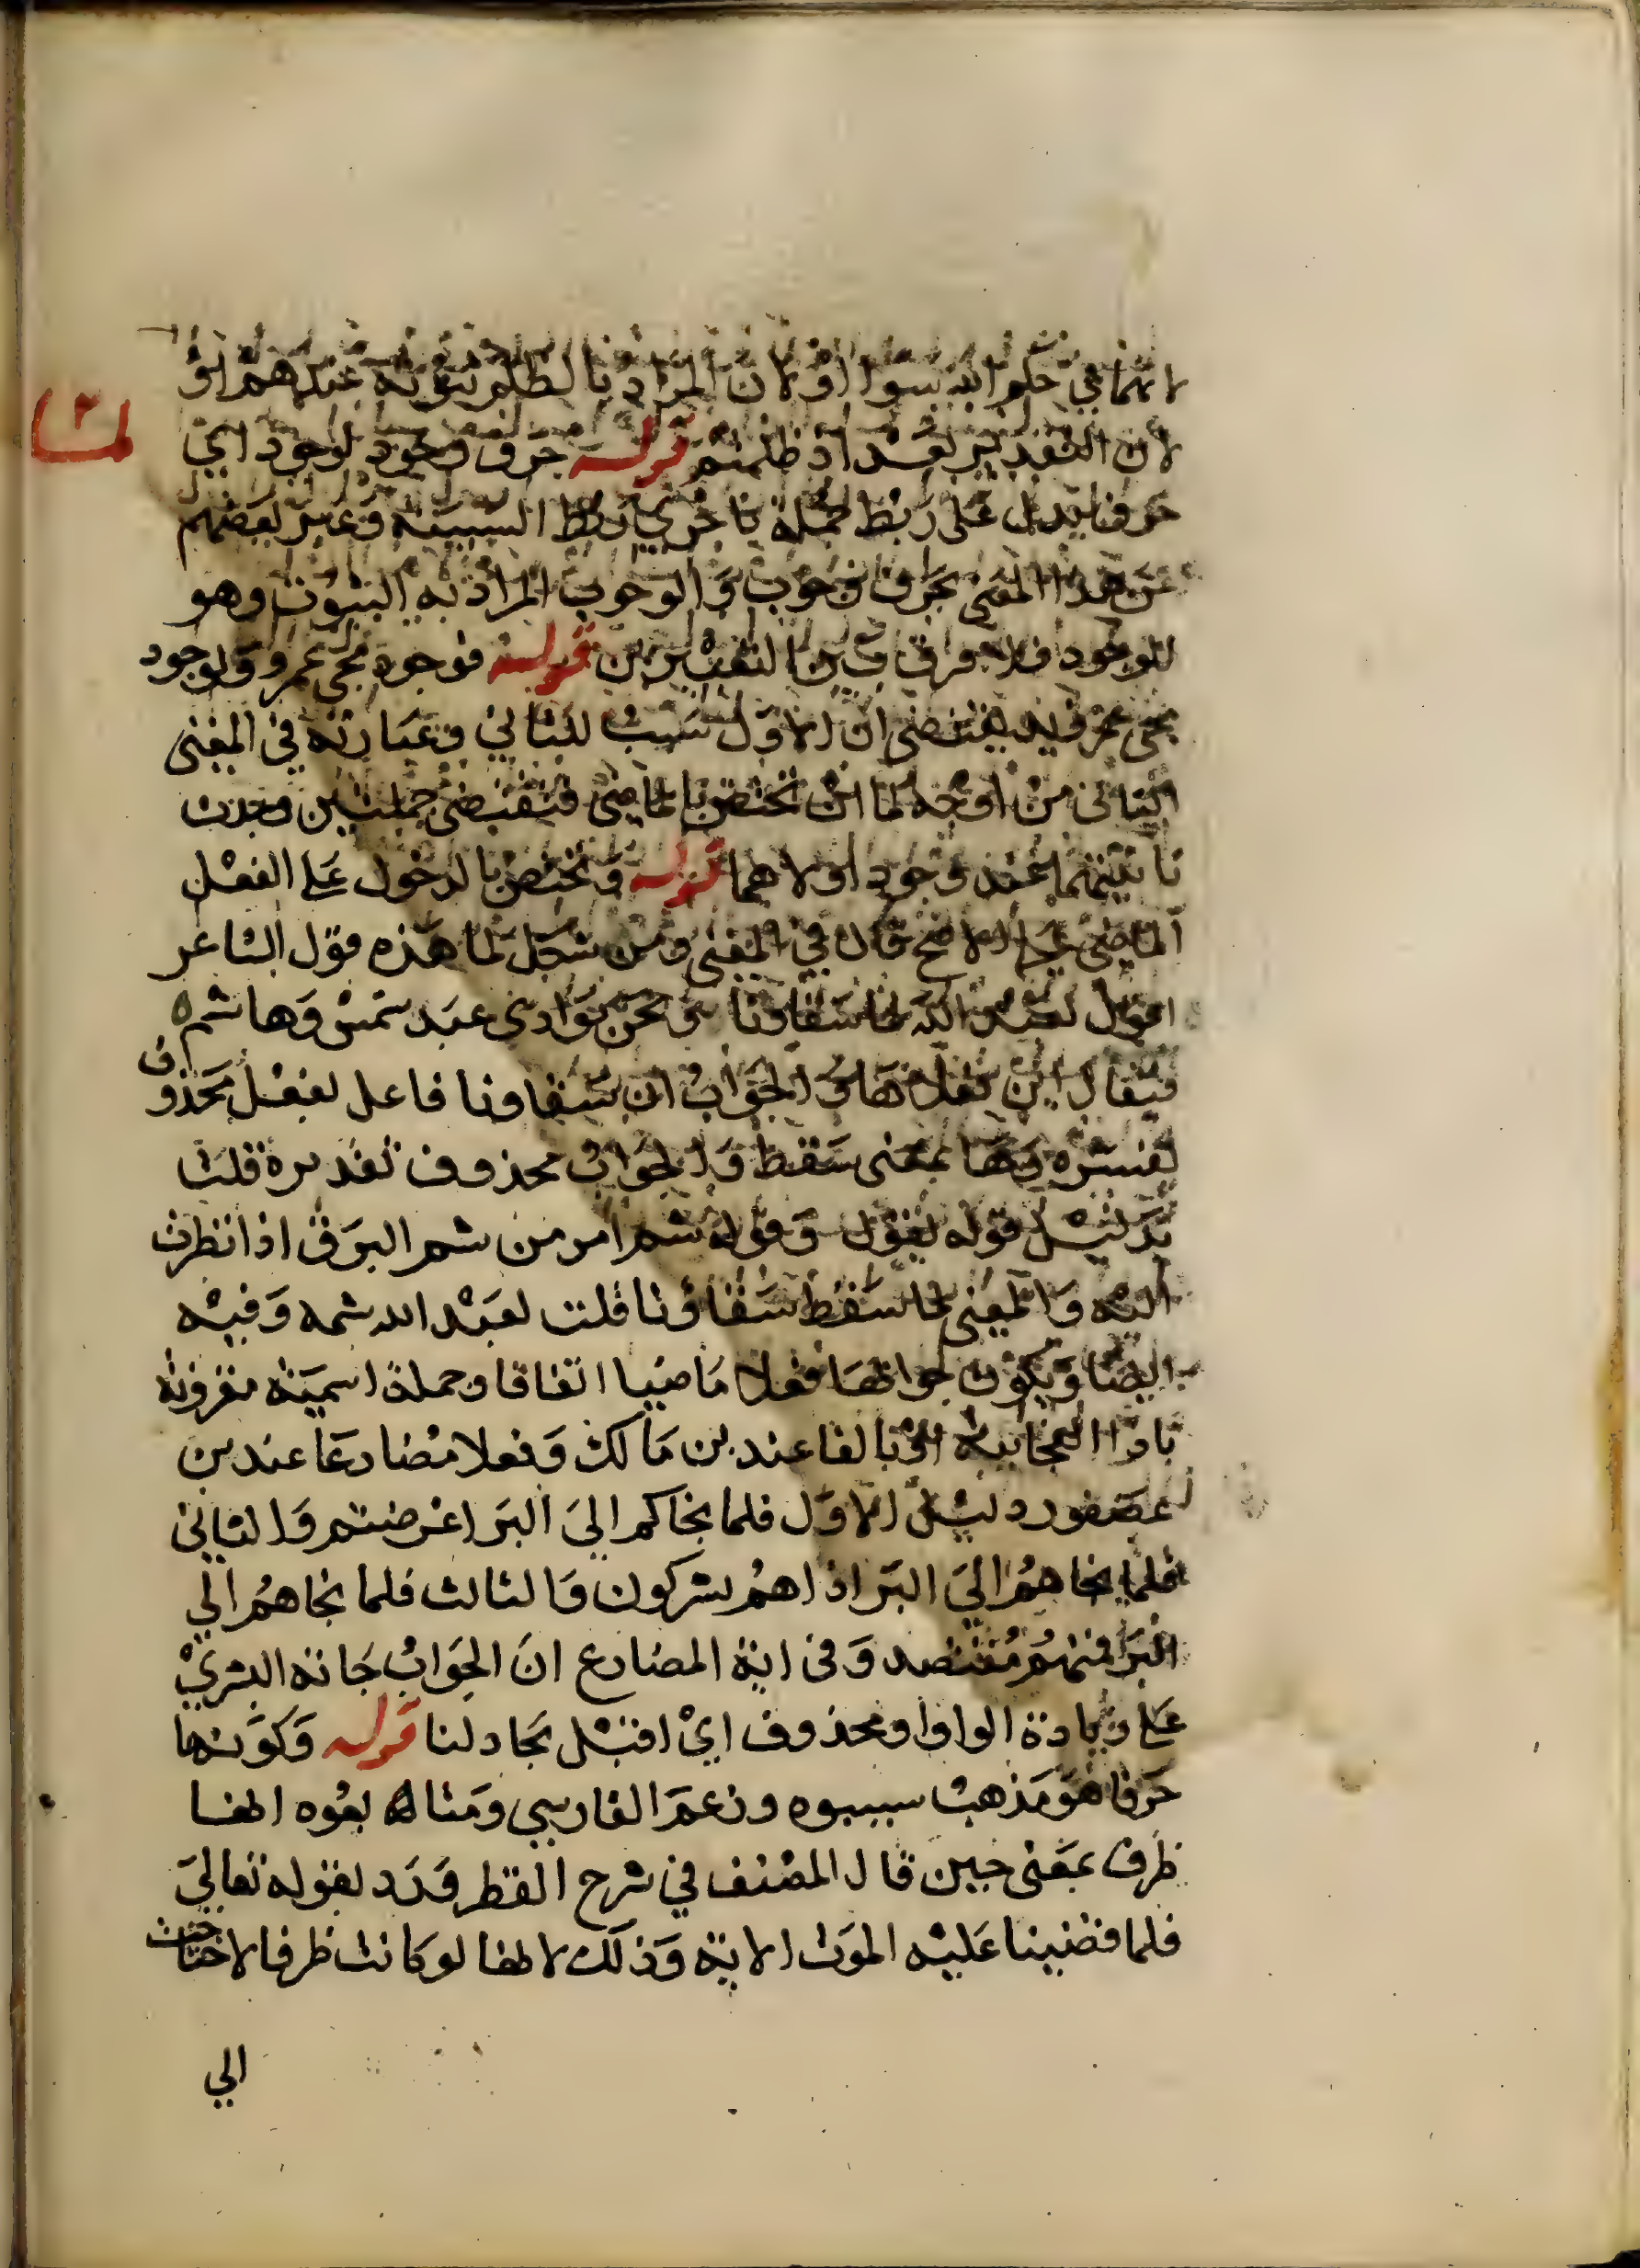 لانهما في حكم الله سوا او لان المراد بالظلم ثبوته عندهم او
لما
لان التقدير بعد اذ ظلمتم قوله حرف وجود لوجود اي
حرف يدل على ربط جملة باخري ربط السببية وعبر بعضهم
عن هذا المعني بحرف وجوب والوجوب المراد به الثبوت وهو
الوجود فلا فرق بين التفسيرين قوله فوجود مجي عمرو لوجود
مجي يقتضي ان الاول سبب للثاني وعبارته في المغني
الثاني من اوجه لما ان تختص بالماضي فتقتضي جملتين وجدت
ثانيتهما عند وجود اولاهما قوله وتختص بالدخول علي الفعل
الماضي علي الاصح قال في المغني ومن مشكل لما هذه قول الشاعر
اقول لعبد الله لما سقاونا ونحن بوادي عبد شمس وهاشم
فيقال اين فعلاها والجواب ان سقاونا فاعل لفعل محذوف
يفسره وها بمعني سقط والجواب محذوف تقديره قلت
بدليل قوله اقول وقوله شم امر من شم البرق اذا نظرت
اليه والمعني لما سقط سقاونا قلت لعبد الله شمه وفيه
ايضا ويكون جوابها فعلا ماضيا اتفاقا وجملة اسمية مقرونة
باذا الفجايية او بالفا عند بن مالك وفعلا مضارعا عند بن
عصفور دليل الاول فلما نجاكم الي البر اعرضتم والثاني
فلما نجاهم الي البر اذا هم يشركون والثالث فلما نجاهم الي
البر فمنهم مقتصد وفي اية المضارع ان الجواب جاته البشري
علي زيادة الواو او محذوف اي اقبل يجادلنا قوله وكونها
حرفا هو مذهب سيبويه وزعم الفارسي ومتابعوه انها
ظرف بمعني حين قال المصنف في شرح القطر ورد بقوله تعالي
فلما قضينا عليه الموت الاية وذلك لانها لو كانت ظرفا لاحتاجت
الي